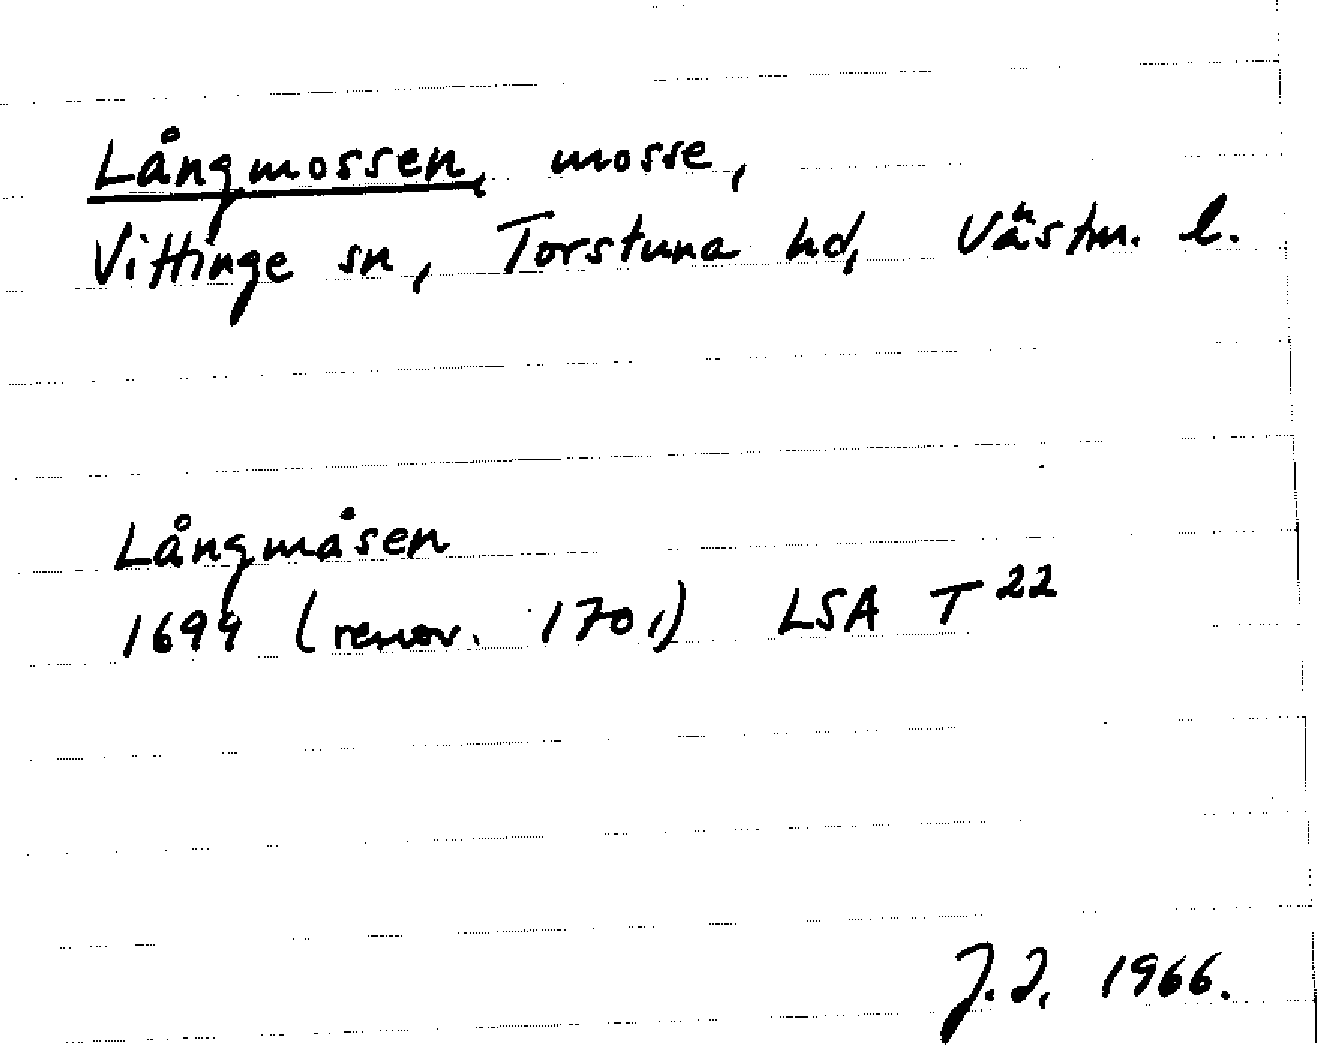 Långmossen, mosse,
Vittinge sn, Torstuna hd, Västm. l.
Långmåsen
1699 (renov. 1701) LSA T 22
J.I. 1966.